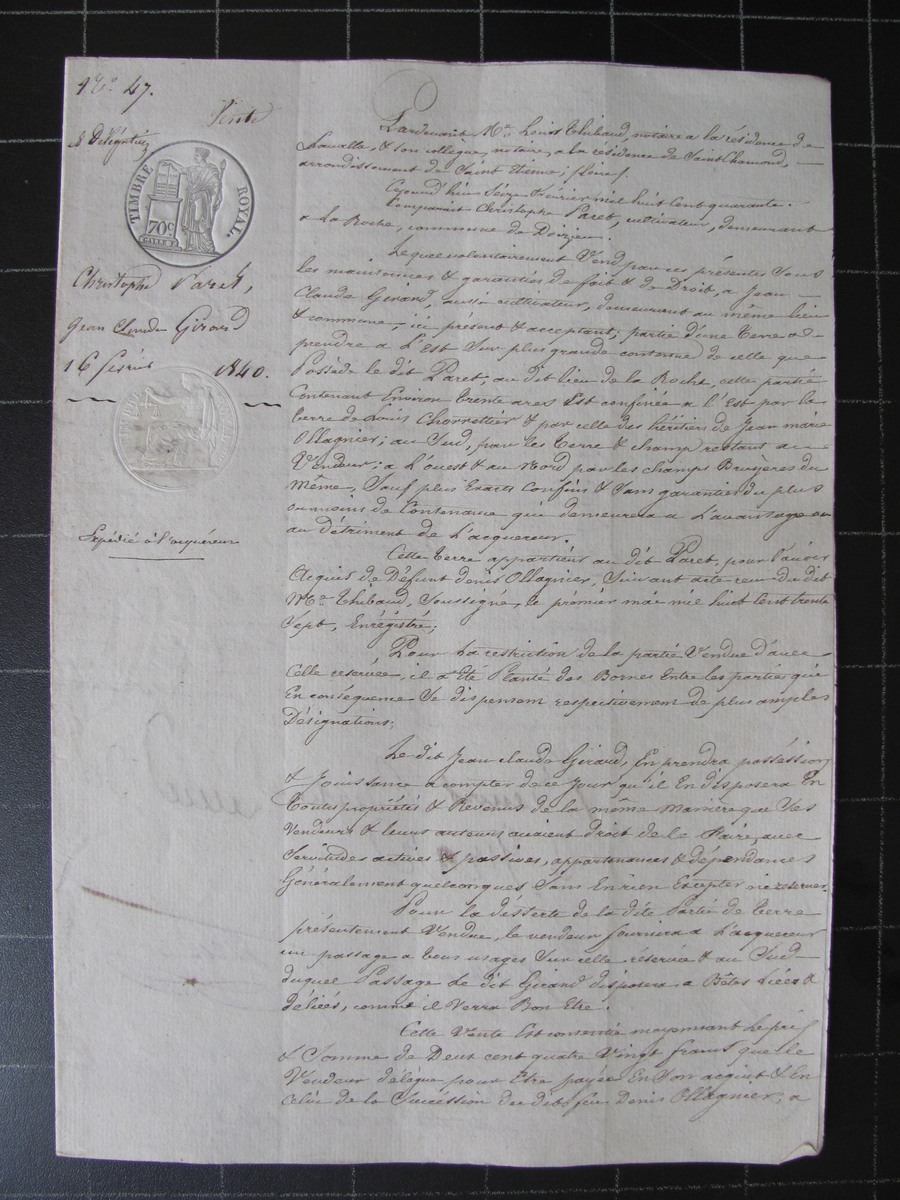 No. 47.
Vente
& Délégation
TIMBRE ROYAL.
70c
Christophe Paret,
Jean Claude Giraud
16 février 1840.
Expédié à l'aquéreur
Pardevant Me. Louis Thibaud, notaire a la résidence de
& son collegue, notaire, a la résidence de Saint Chamond,
arrondissement de Saint Etienne, (Loire).
Cejourd'hui Seize Février mil huit cent quarante.
Comparait Christophe Paret, cultivateur, demeurant
a La Roche, commune de Doizieu.
Lequel volontairement Vend par ces présentes Sous
les maintenues & garanties de fait & de Droit, a Jean
Claude Giraud, aussi cultivateur, demeurant au même lieu
& commune, ici présent & acceptant; partie d'une terre a
prendre a L'Est Sur plus grande contenue de celle que
Possède le dit Paret, au dit lieu de la Roche, cette partie
Contenant Environ trente ares Est confinée a l'Est par la
terre de Louis Chorrettier & par celle des héritiers de Jean marie
Ollagnier; au Sud, par les terre & champ restant au
Vendeur; a L'ouest & au Nord par les champs Bruyères du
même, Sauf plus Exacts Confins & Sans garantie du plus
ou moins de Contenance qui demeurera a L'avantage ou
au détriment de L'acquereur.
Cette terre appartient au dit Paret, pour l'avoir
Acquise de Défunt denis Ollagnier, Suivant acte reçu du dit
Me. Thibaud, Soussigné, le premier mai mil huit cent trente
Sept, Enrégistré;
Pour la restriction de la partie Vendue d'avec
Celle reservée, il a Eté Planté des Bornes Entre les parties qui
En conséquence Se dispensent respectivement de plus amples
Désignations;
Le dit Jean claude Giraud, En prendra posséssion
& Jouissance a compter de ce Jour qu'il En disposera En
Toutes propriétés & Revenus de la même Maniere que Ses
Vendeur & leurs auteurs avaient droit de le Faire, avec
Servitudes actives & passives, appartenances & dépendances
Généralement quelconques Sans En rien Excepter ni réserver.
Pour la désserte de la dite Partie de terre
présentement Vendue, le vendeur fournira a L'acquereur
un passage a tous usages Sur celle réservée & au Sud
duquel Passage le dit Giraud disposera a Bêtes Liées &
déliées, comme il Verra Bon Etre.
Cette Vente Est consentie moyennant le prix
& Somme de Deux cent quatre Vingt francs que le
Vendeur délègue pour Etre payée En Son acquit & En
Celui de la Succession du dit feu Denis Ollagnier, a